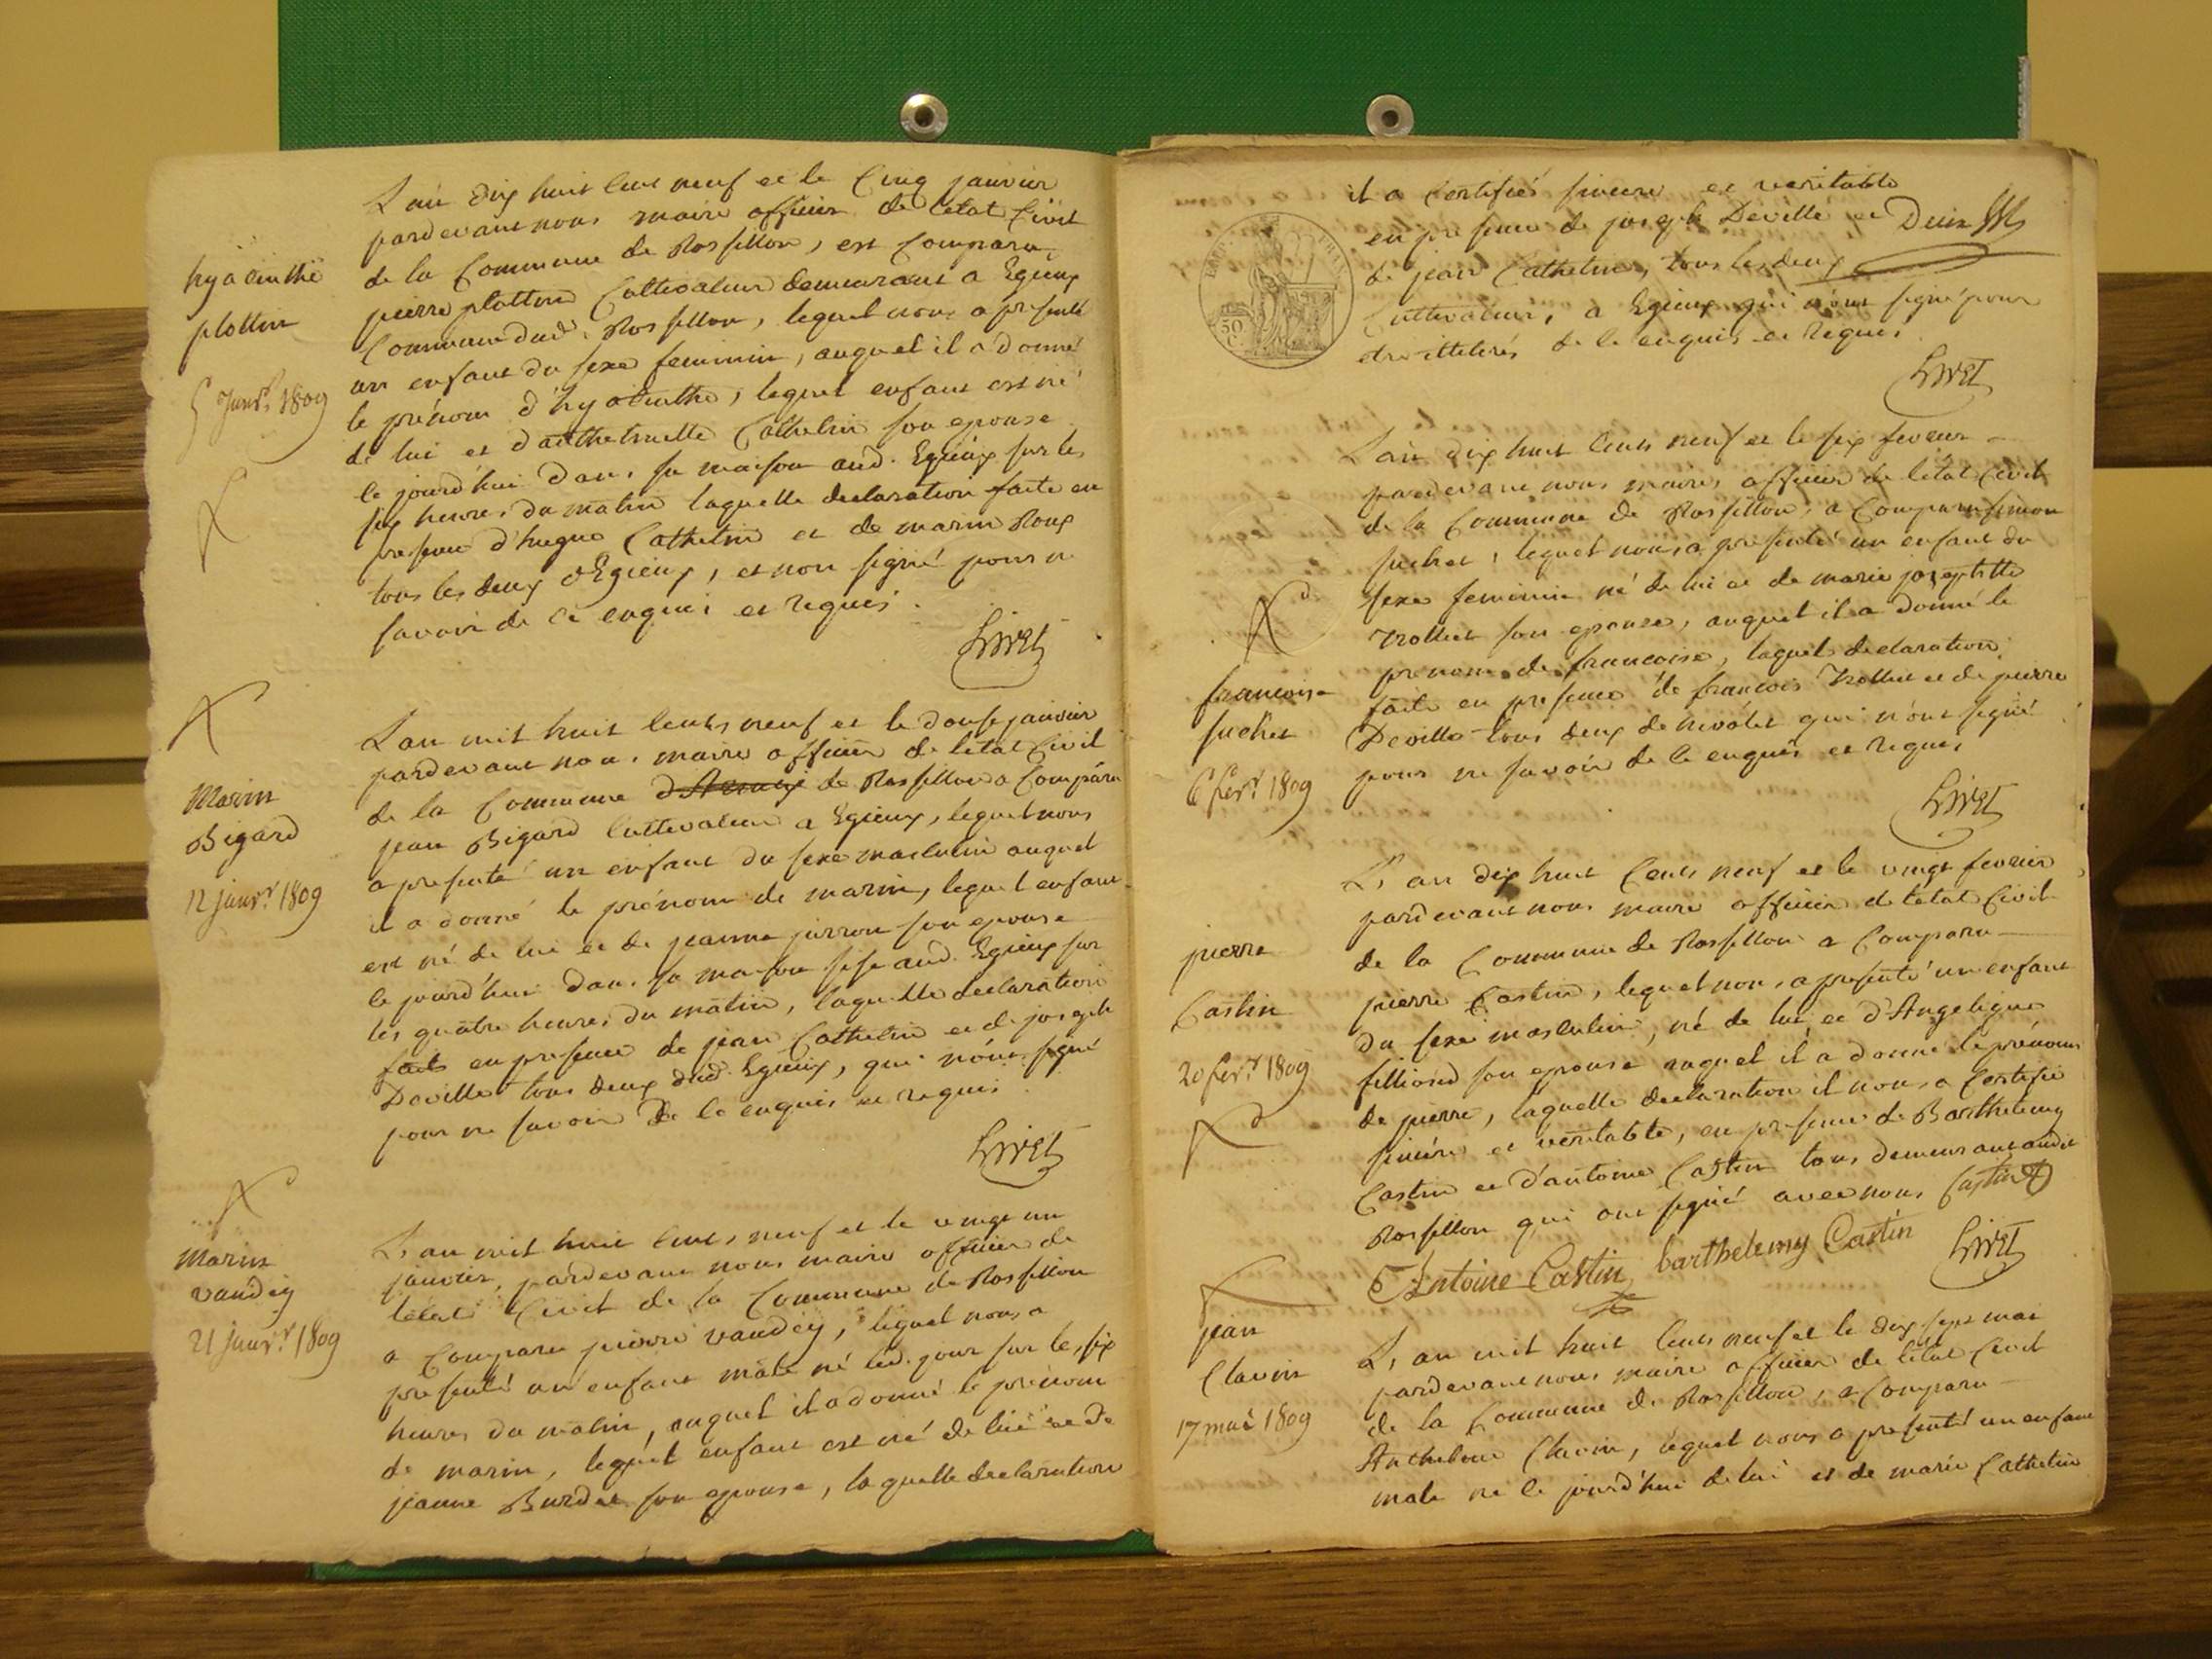 L'an dix huit cent neuf et le Cinq janvier
pardevant nous maire officier de l'état Civil
de la Commune de Rossillon, est Comparu
pierre plottin Cultivateur demeurant a Egieux
Commune dud. Rossillon, lequel nous a presenté
un enfant du sexe feminin, auquel il a donné
le prénom d'hyacinthe, lequel enfant est né
de lui et d'anthelmette Cathelin son epouse
le jourd'hui dans sa maison aud. Egieux sur les
six heures du matin laquelle declaration faite en
presence d'hugue Cathelin et de marin Roux
tous les deux d'Egieux, et non signé pour ne
savoir de ce enquis et requis.
Livet
hyacinthe
plottin
5 Janv.r 1809
L'an mil huit cents neuf et le douse janvier
pardevant nous maire officier de l'état Civil
de la Commune de Rossillon a Comparu
jean Bigard Cultivateur a Egieux, lequel nous
a presenté un enfant du sexe masculin auquel
il a donné le prénom de marin, lequel enfant
est né de lui et de jeanne son epouse
le jourd'hui dans sa maison sise aud. Egieux sur
les quatre heures du matin, laquelle declaration
faite en presence de jean Cathelin et de joseph
Deville tous deux dud. Egieux, qui n'ont signé
pour ne savoir de ce enquis et requis
Livet
Marin
Bigard
12 janv.r 1809
L'an mil huit cents neuf et le vingt un
janvier, pardevant nous maire officier de
l'état Civil de la Commune de Rossillon
a Comparu pierre vandey, lequel nous a
presenté un enfant male né led. jour sur les six
heures du matin, auquel il a donné le prénom
de marin, lequel enfant est né de lui et de
jeanne Burdet son epouse, laquelle declaration
Marin
vandey
21 janv.r 1809
il a Certifiés sincere et veritable
en presence de joseph Deville et
de jean Cathelin, tous les deux
Cultivateurs, a Egieux qui n'ont signé pour
etre illiterés de ce enquis et requis
Livet
EMP. FRAN.
50 C.
L'an dix huit cents neuf et le six fevrier
pardevant nous maire, officier de l'état Civil
de la Commune de Rossillon, a Comparu simon
suchet, lequel nous a presenté un enfant du
sexe feminin né de lui et de marie josephtte
trollict son epouse, auquel il a donné le
prenom de francoise, laquel declaration
faite en presence de francois trolliet et de pierre
Deville tous deux de qui n'ont signé
pour ne savoir de ce enquis et requis
Livet
francoise
suchet
6 fevr.r 1809
L'an dix huit Cents neuf et le vingt fevrier
pardevant nous maire officier de l'état Civil
de la Commune de Rossillon a Comparu
pierre Castin, lequel nous a presenté un enfant
du sexe masculin, né de lui et d'Angelique
filliond son epouse auquel il a donné le prénom
de pierre, laquelle declaration il nous a Certifié
sincere et veritable, en presence de Barthelemy
Castin et d'antoine Castin tous demeurant audit
Rossillon qui ont signé avec nous Castin
Antoine Castin barthelemy Castin Livet
pierre
Castin
20 fevr.r 1809
L'an mil huit cents neuf et le dix sept mai
pardevant nous maire officier de l'état Civil
de la Commune de Rossillon, a Comparu
Anthelme Clavin, lequel nous a presenté un enfant
male né le jourd'hui de lui et de marie Cathelin
jean
Clavin
17 mai 1809